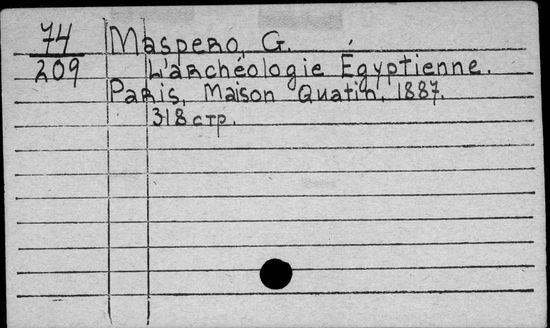 74 Maspero, G.
209 L'archéologie Égyptienne.
Paris, Maison Quatin. 1887.
318 стр.